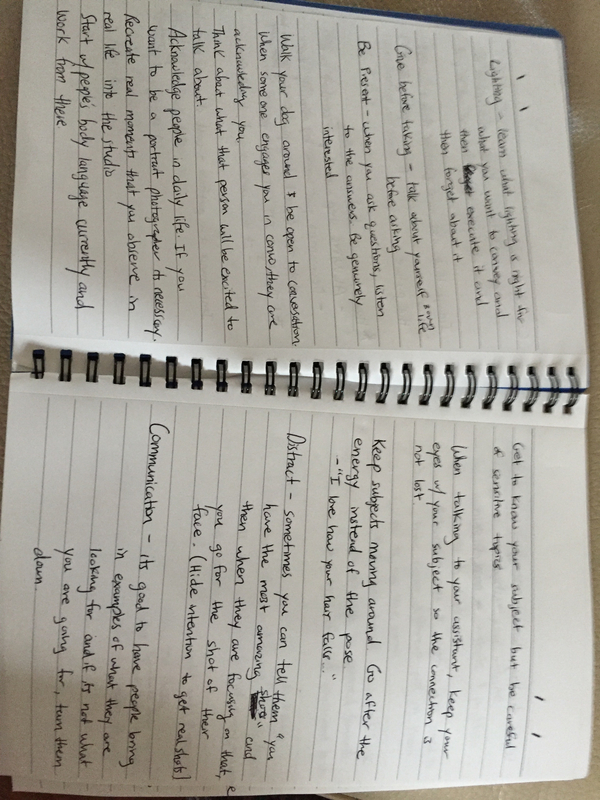 Lighting – learn what lighting is right for
what you want to convey and
then execute it and
then forget about it
Give before taking – talk about yourself life
before asking
Be Present – when you ask questions, listen
to the answers. Be genuinely
interested
Walk your dog around & be open to conversation.
When someone engages you in convo, they are
acknowledging you.
Think about what that person will be excited to
talk about.
Acknowledge people in daily life. If you
want to be a portrait photographer its necessary.
Recreate real moments that you observe in
real life into the studio
Start w/ people's body language currently and
work from there
Get to know your subject but be careful
of sensitive topics
When talking to your assistant, keep your
eyes w/ your subject so the connection is
not lost
Keep subjects moving around Go after the
energy instead of the pose
- "I love how your hair falls..."
Distract – sometimes you can tell them "you
have the most amazing " and
then when they are focusing on that,
you go for the shot of their
face. (Hide intention to get real shots)
Communication – its good to have people bring
in examples of what they are
looking for and if its not what
you are going for, turn them
down.